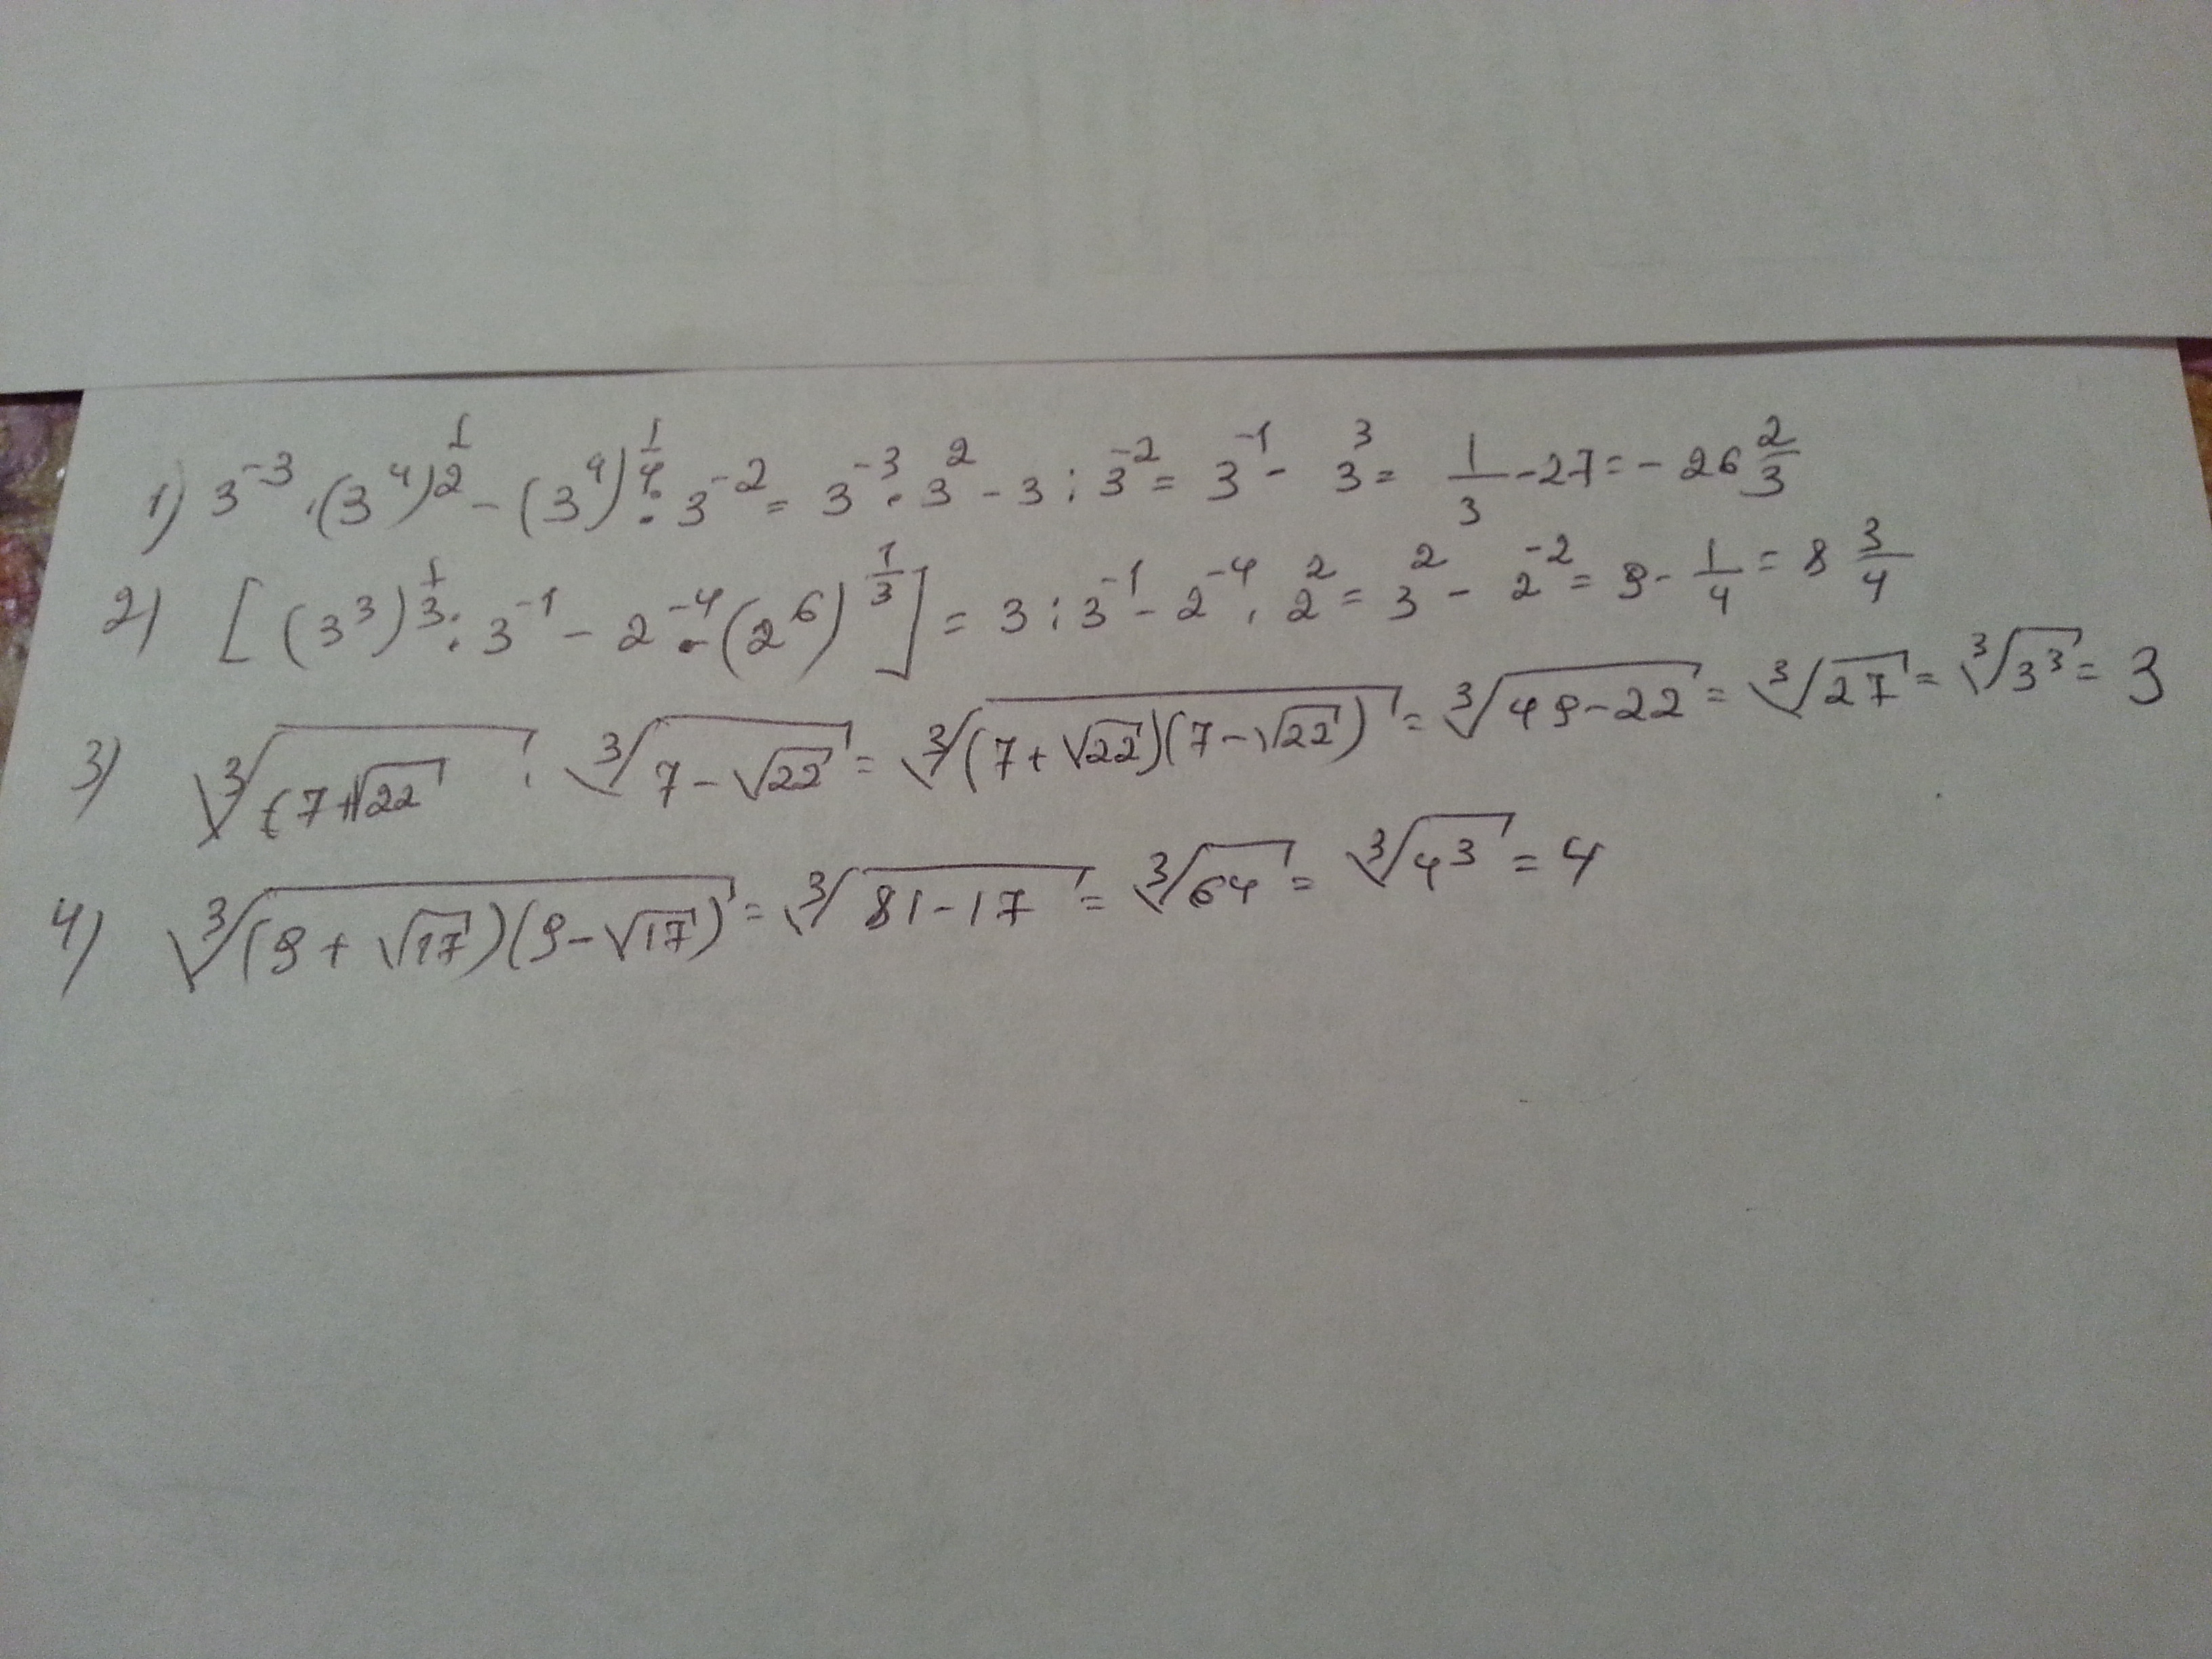 1) 3⁻³ · (3⁴)^(1/2) - (3⁴)^(1/4) : 3⁻² = 3⁻³ · 3² - 3 : 3⁻² = 3⁻¹ - 3³ = 1/3 - 27 = - 26 2/3
2) [(3³)^(1/3) : 3⁻¹ - 2⁻⁴ · (2⁶)^(1/3)] = 3 : 3⁻¹ - 2⁻⁴ · 2² = 3² - 2⁻² = 9 - 1/4 = 8 3/4
3) ∛(7+√22) · ∛(7-√22) = ∛((7+√22)(7-√22)) = ∛(49-22) = ∛27 = ∛3³ = 3
4) ∛((9+√17)(9-√17)) = ∛(81-17) = ∛64 = ∛4³ = 4